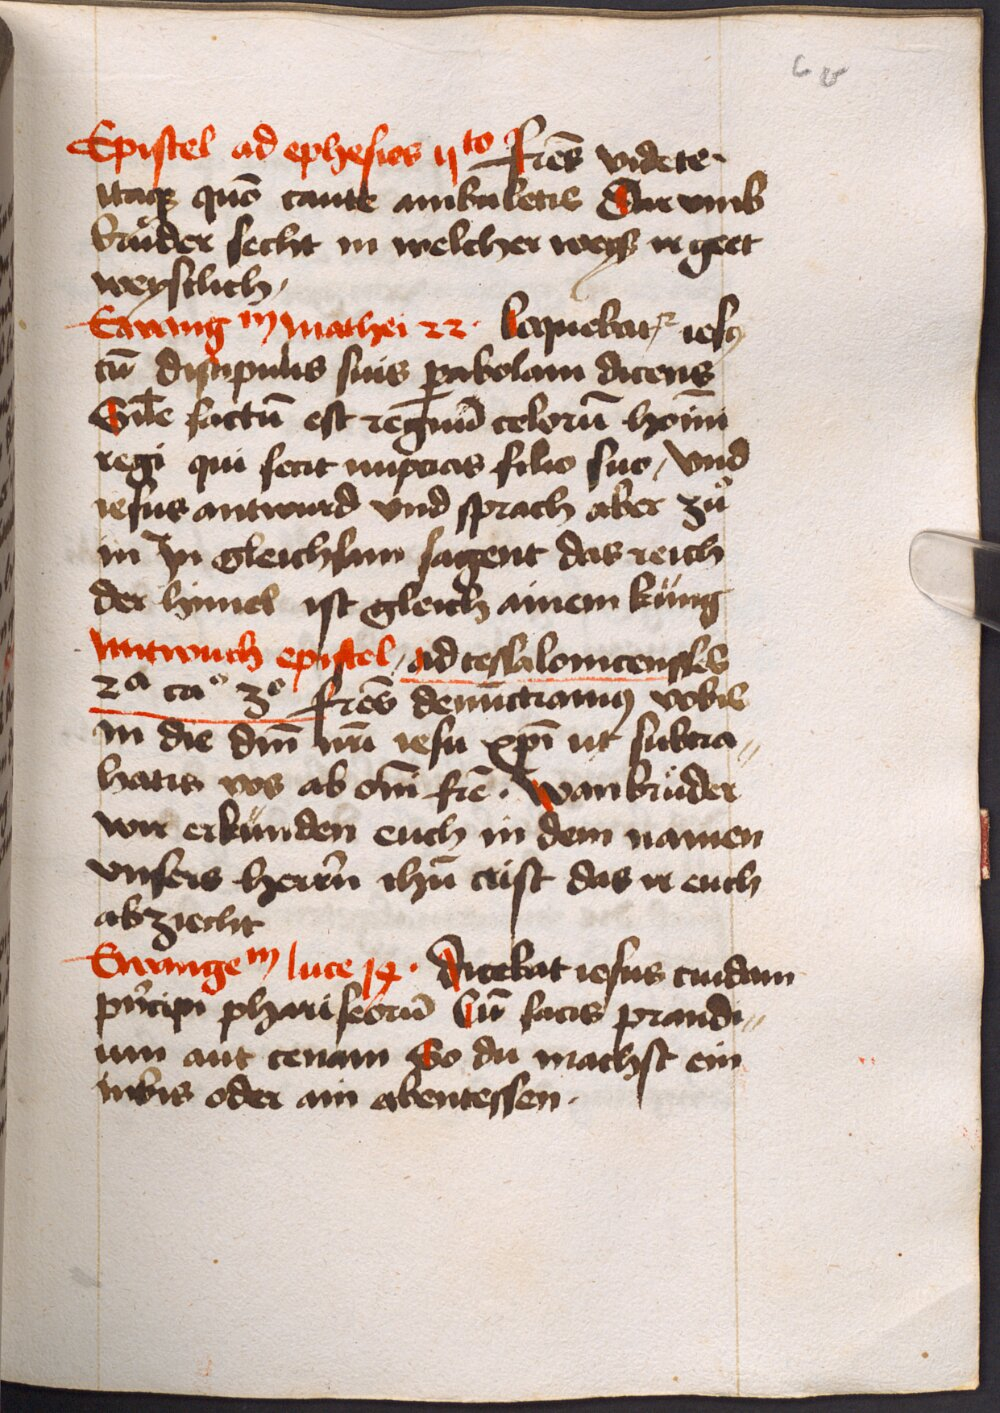 Epistel ad ephesios ııto fres̄ videte
itaqꝫ quō caute ambuletis Dar vmb
brůder secht in welcher weyß ir geet
weystlich /
Ewang m̄ mathei 22 · loquebatr iesꝯ
cū discipulis suis ꝑabolam dicens
Sile̅ factū est regnu̅ celorū homı̄
regi qui fecit nupcias filio suo / Vnd
iesus antwurd vnd sprach aber zů
in In gleichsam sagent das reich
der himel ist gleich ainem küng
Mitwuch epistel / ad tessalonicenses
2a ca° 3° fres̄ denūctiamꝯ vobis
In die dnı̄ nrı̄ iesu xp̄ı ut subtra〃
hatis vos ab om̄ı fr̄e · Wan brůder
wir erkünden euch in dem namen
vnsers herr̄n ihū crist das ir euch
abziecht
Ewange m̄ luce 14 · Dicebat iesus cuidam
pn̄cipi phariseorū Cū facis prandi〃
um aut cenam So du machst ein
imbis oder ain abentessen ·